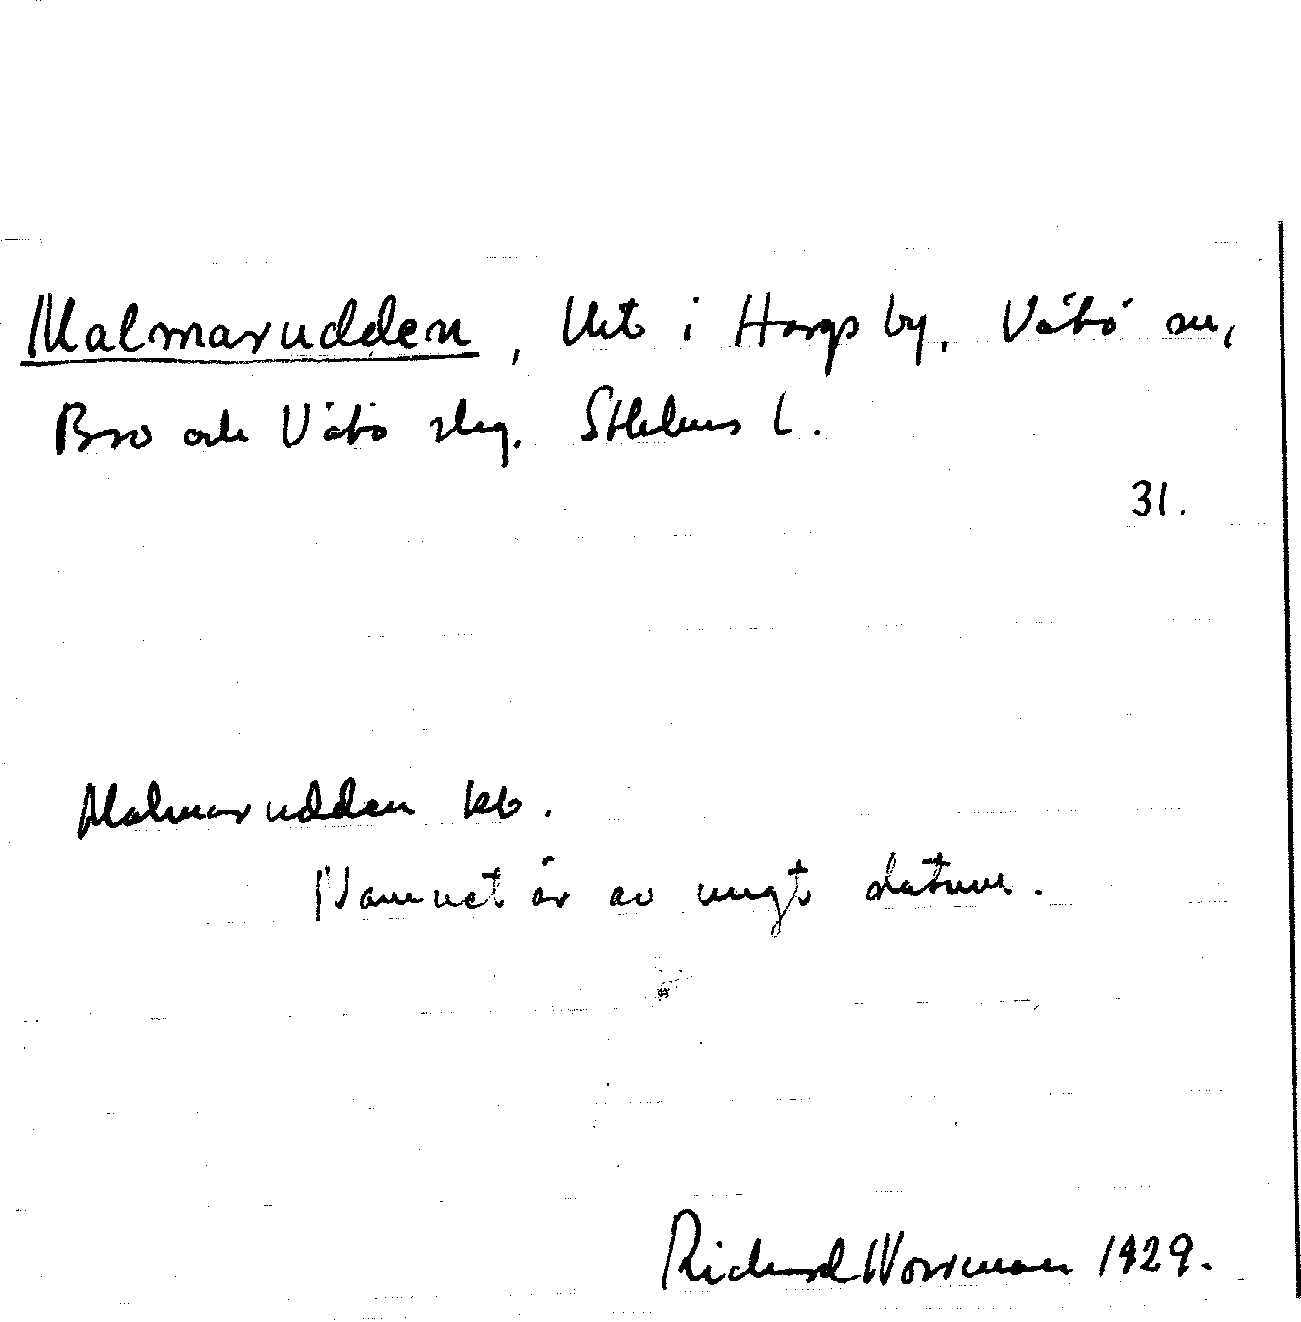 Malmarudden, Uet i Hargs by, Vätö sn,
Bro och Vätö slg. Sthlms l.
31.
Malmarudden kb.
Namnet är av ungt datum.
Richard Norrman 1929.